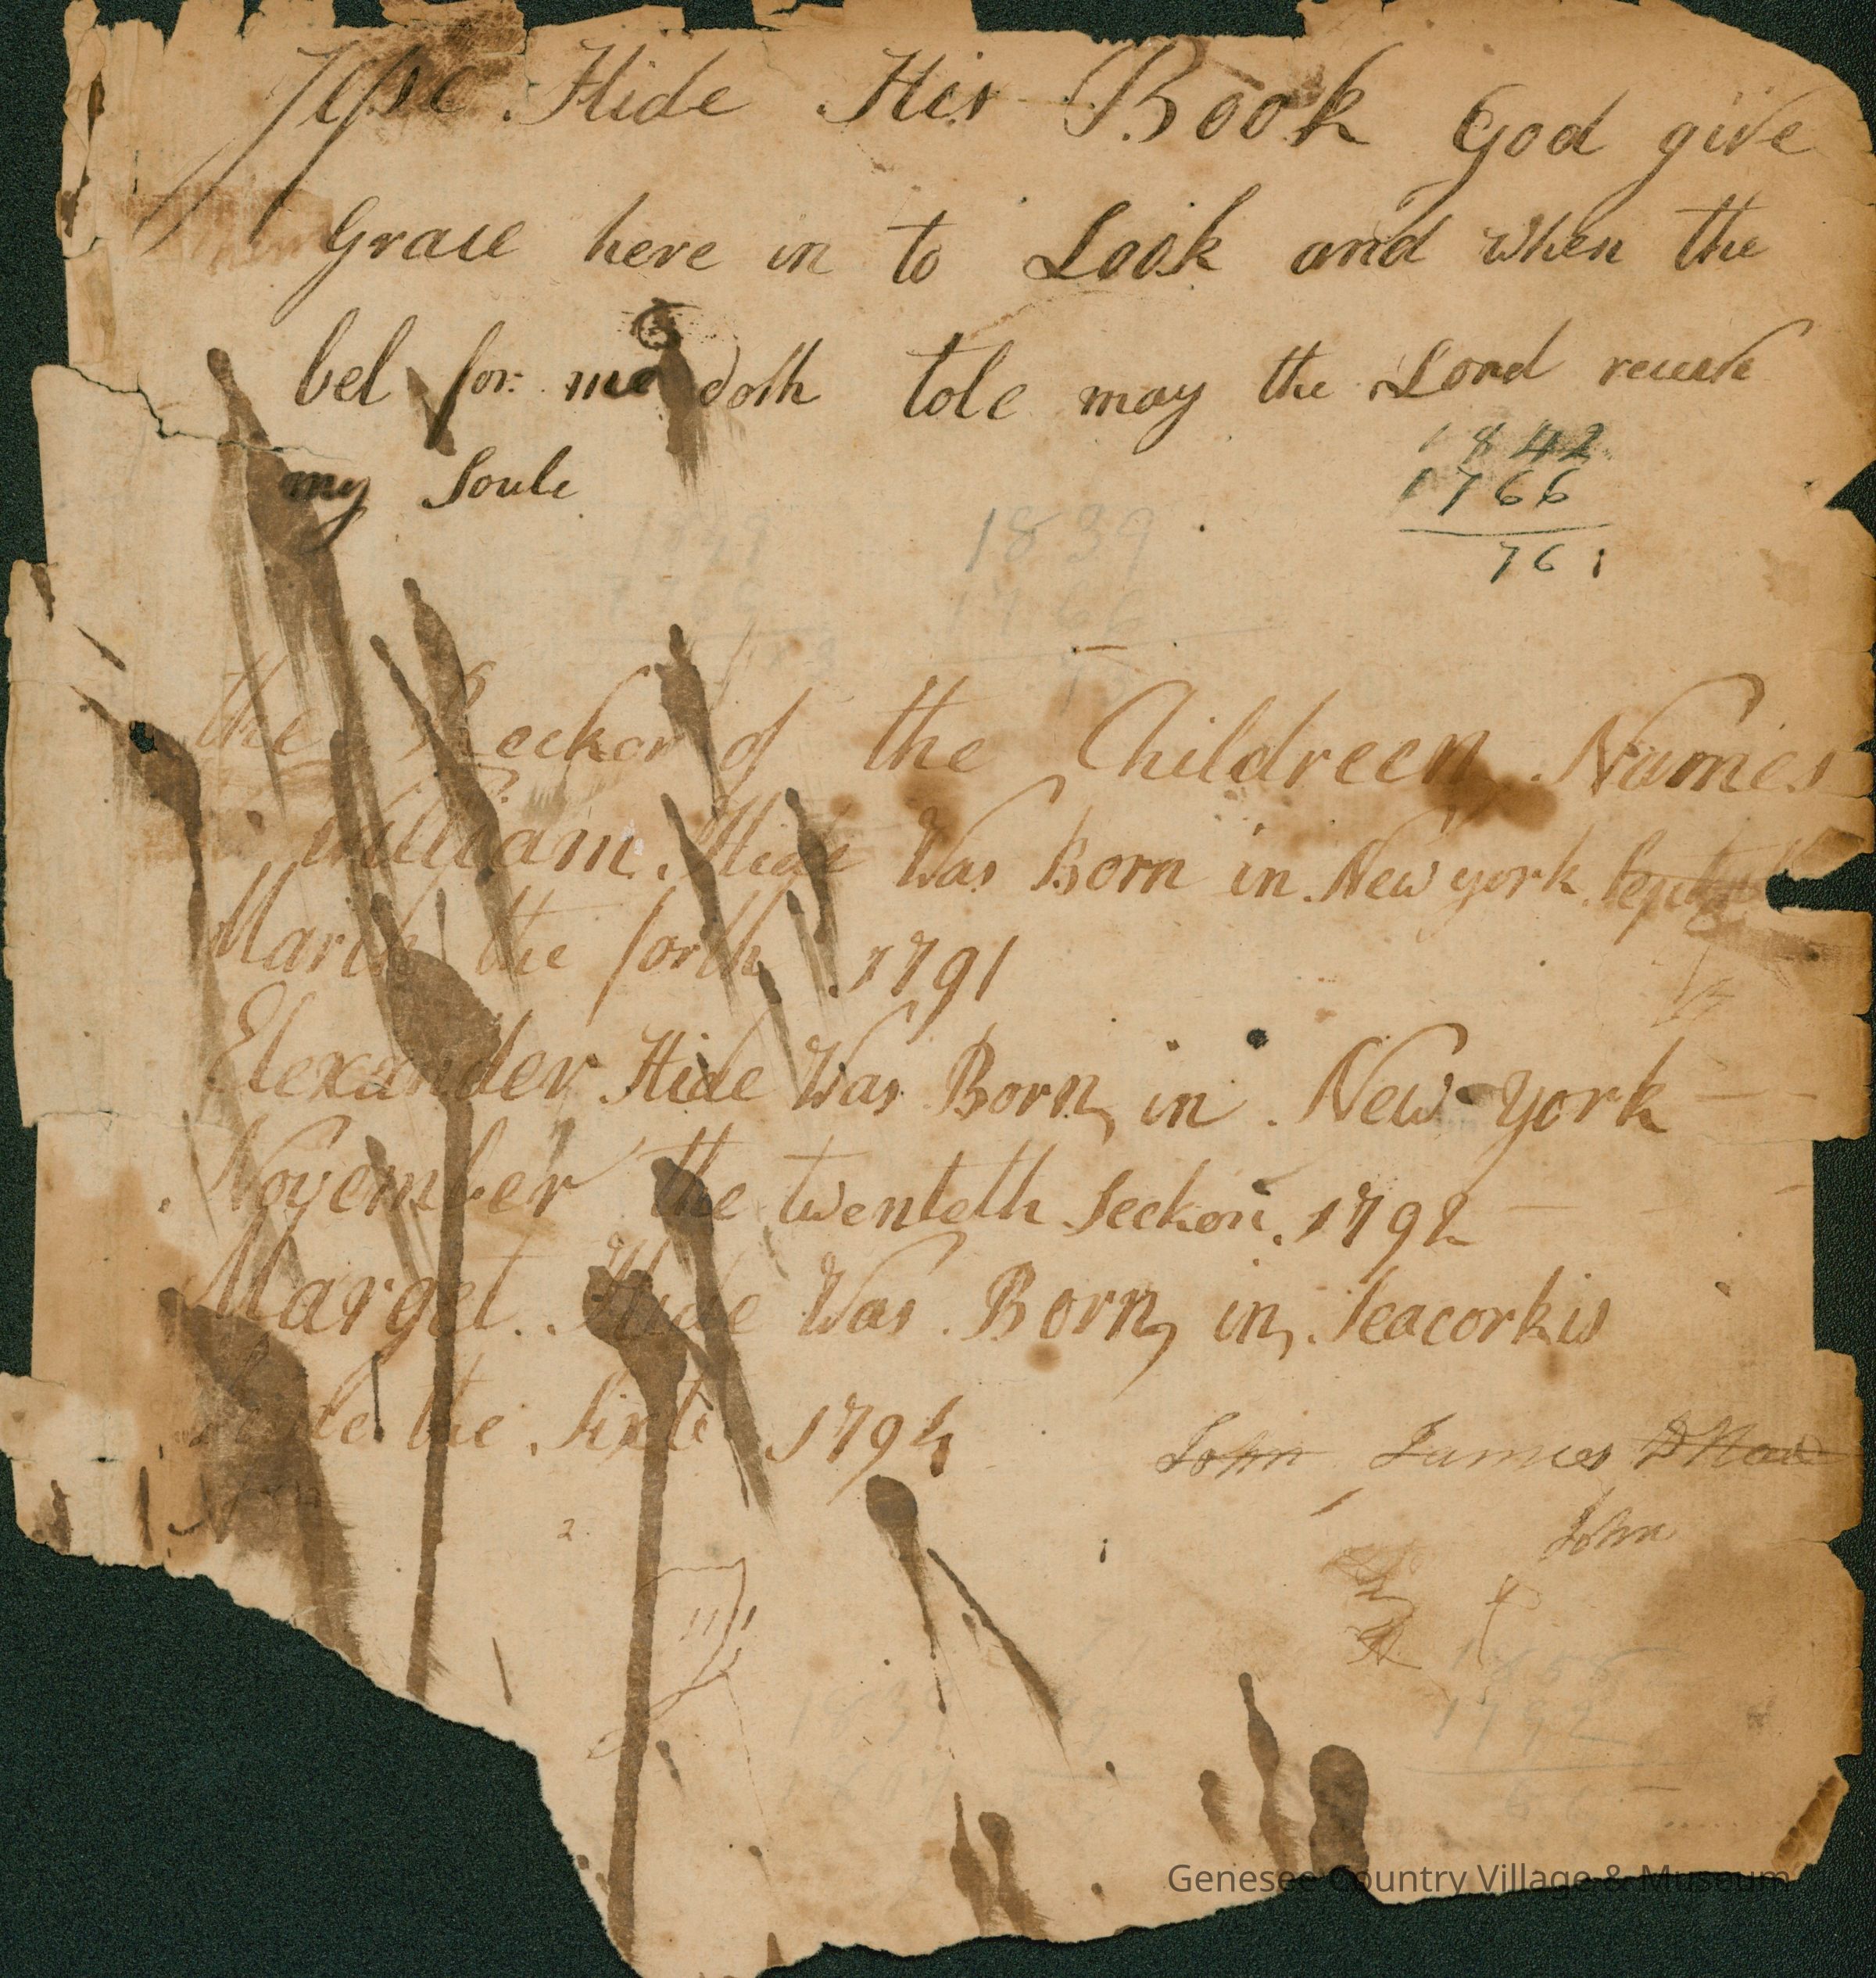 Jesse Hide His Book God give
Grace here in to Look and when the
bel for me doth tole may the Lord receve
my Soule
1842
1766
76
1839
1766
the Reckor of the Childreen Names
William Hide Was Born in New york
March the forth 1791
Elexander Hide Was Born in New york
November the twenteth Seckon 1792
Marget Hide Was Born in Seacorkis
the Sixte 1794
John James
John
1858
1792
66
1839
Genesee Country Village & Museum